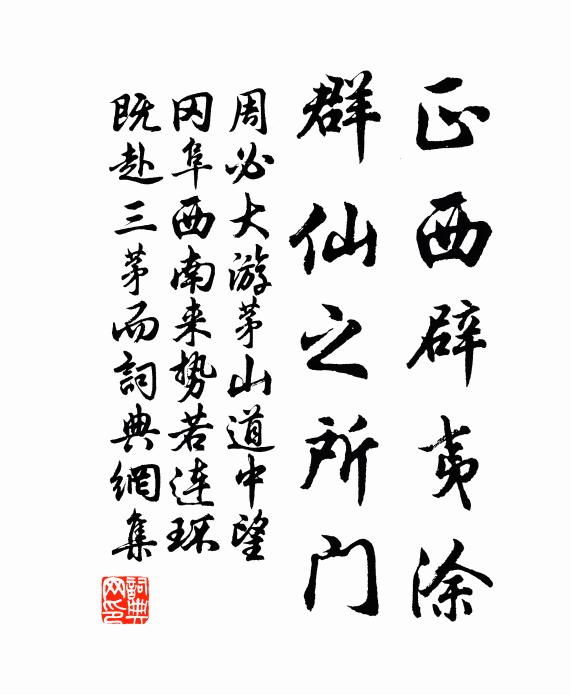 正西辟夷涂
群仙之所门
周必大游茅山道中望
冈阜西南来势若连环
既赴三茅而词典網集
詞典網印